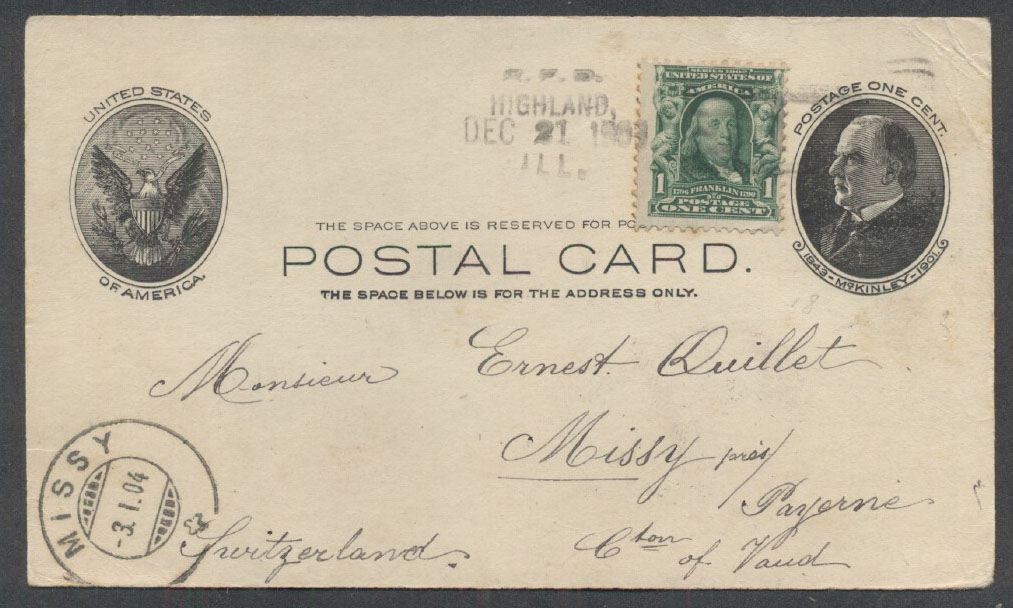 UNITED STATES
OF AMERICA.
R.F.D.
HIGHLAND,
DEC 21 1903
ILL.
SERIES 1902
UNITED STATES OF
AMERICA
1 1706 FRANKLIN 1790 1
POSTAGE
ONE CENT
POSTAGE ONE CENT.
1843-McKINLEY-1901.
THE SPACE ABOVE IS RESERVED FOR PO
POSTAL CARD.
THE SPACE BELOW IS FOR THE ADDRESS ONLY.
18
Monsieur Ernest Quillet
Missy près
Payerne
Cton of Vaud
Switzerland.
MISSY
-3.I.04